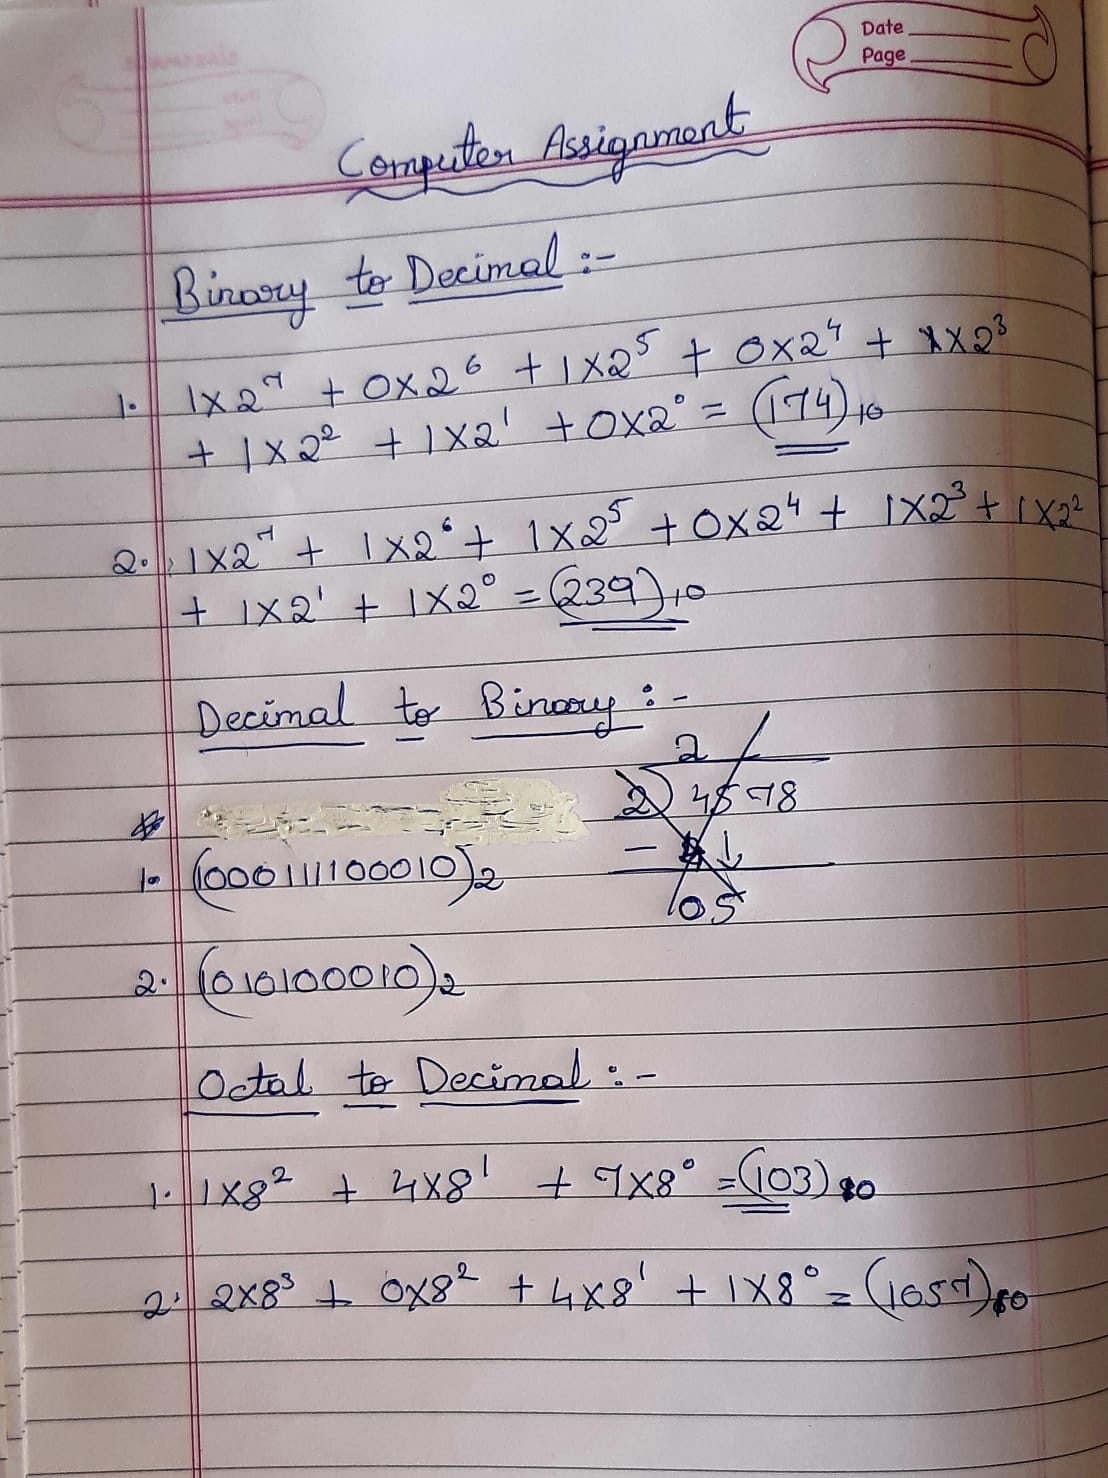 Date
Page
Computer Assignment
Binary to Decimal :-
1. 1×2⁷ + 0×2⁶ + 1×2⁵ + 0×2⁴ + 1×2³
+ 1×2² + 1×2¹ + 0×2⁰ = (174)₁₀
2. 1×2⁷ + 1×2⁶ + 1×2⁵ + 0×2⁴ + 1×2³ + 1×2²
+ 1×2¹ + 1×2⁰ = (239)₁₀
Decimal to Binary :-
2
2) 4578
- 4 ↓
05
1. (1000111100010)₂
2. (1010100010)₂
Octal to Decimal :-
1. 1×8² + 4×8¹ + 7×8⁰ = (103)₁₀
2. 2×8³ + 0×8² + 4×8¹ + 1×8⁰ = (1057)₁₀